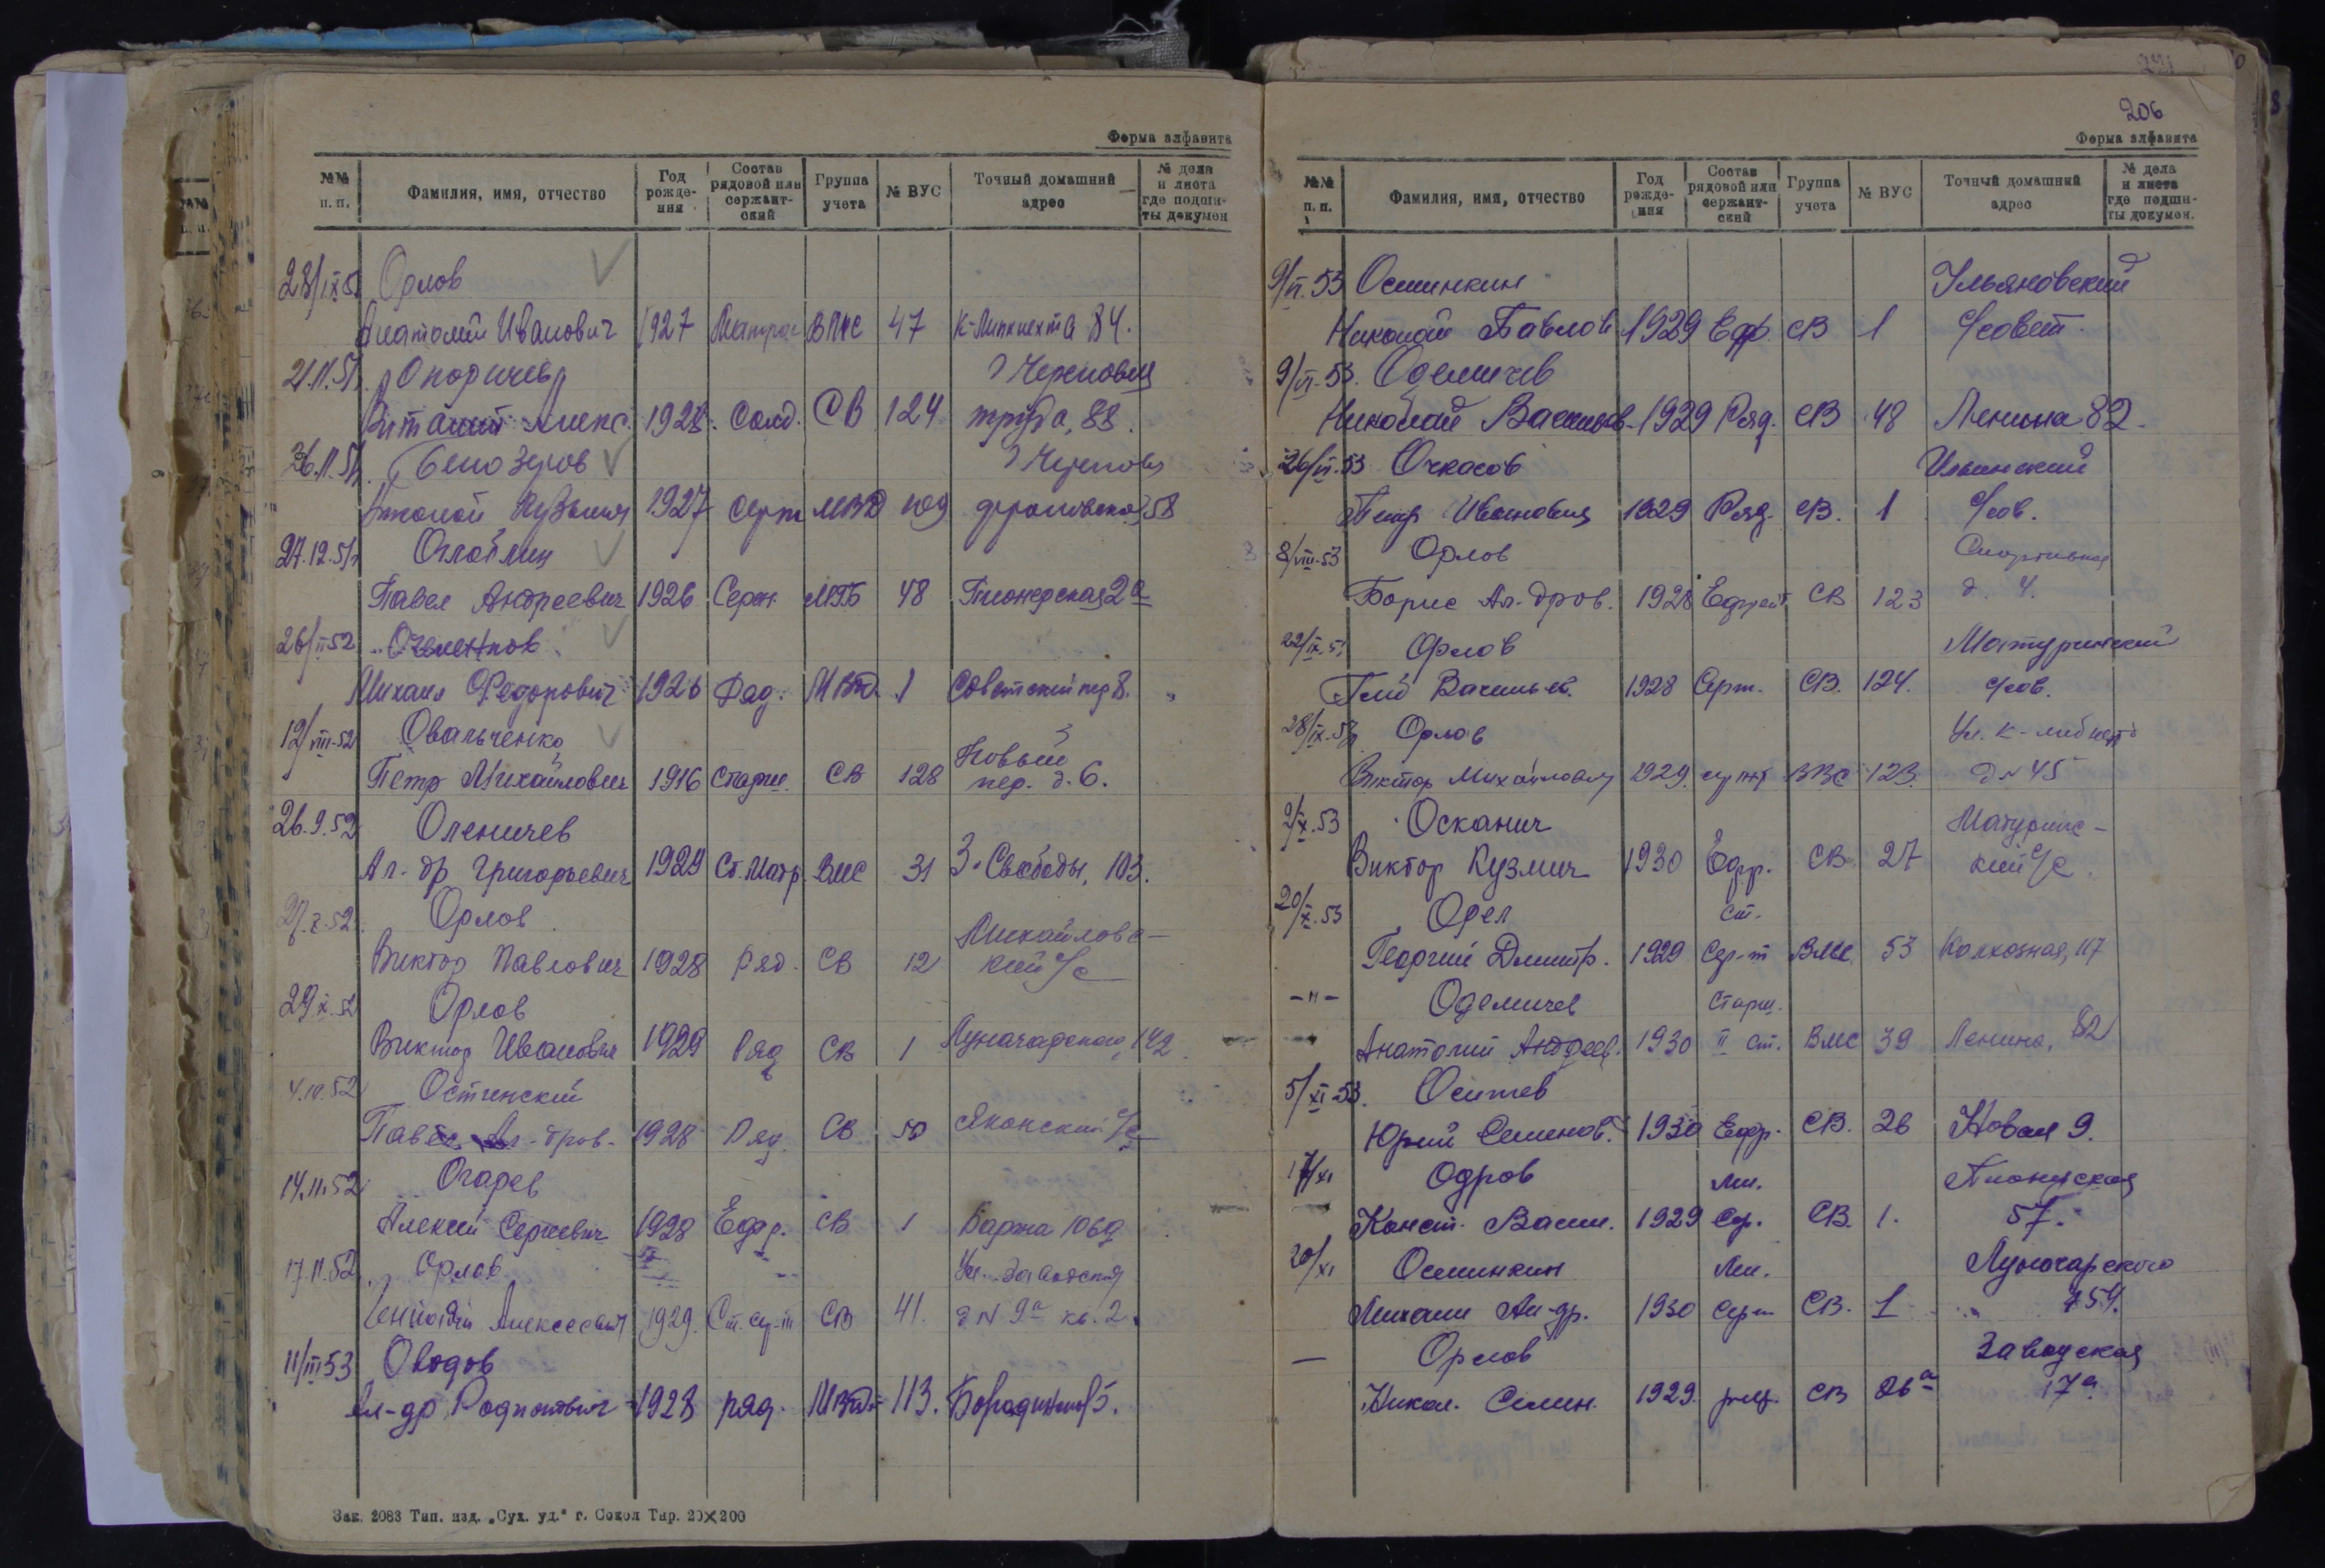 Форма алфавита
№№ п. п. Фамилия, имя, отчество Год рождения Состав рядовой или сержантский Группа учета № ВУС Точный домашний адрес № дела и листа где подшиты докумен
28/IX 51 Орлов
Анатолий Иванович 1927 Матрос ВМС 47 К-Липкнехта 84.
21.11.51 Опоричев г Череповец
Виталий Алекс. 1928. Солд. СВ 124 труда, 88.
26.11.51 Белозеров г Черепов
Кузьмич 1927 серж МВД 58
27.12.51 Оглоблин
Павел Андреевич 1926 Серж. МГБ 48 Пионерская 2а
26/II 52
Михаил Федорович 1926 Ряд. МВД 1 Советский пер 8.
19/VIII-52 Овальченко Новый
Петр Михайлович 1916 Старш. СВ 128 пер. д. 6.
26.9.52 Оленичев
Ал-др Григорьевич 1929 Ст. Матр. ВМС 31 З. Свободы, 103.
27.X.52. Орлов Михайловс-
Виктор Павлович 1928 Ряд. СВ 12 кий с/с
29.X.52 Орлов
Виктор Иванович 1929 Ряд СВ 1 Луначарского, 142
4.11.52 Остинский
Павел Ал-дров. 1928 Ряд. СВ 50 Яконский с/с
14.11.52 Огарев
Алексей Сергеевич 1928 Ефр. СВ 1 Баржа 1069
17.11.52 Орлов Ул. Заводская
Геннадий Алексеевич 1929. Ст. СВ 41. д N 9а кв. 2.
11/III 53 Оводов
Ал-др 1928 ряд. МВД 113. 5.
Зак. 2083 Тип. изд. „Сух. уд.“ г. Сокол Тир. 20×200
206
Форма алфавита
№№ п. п. Фамилия, имя, отчество Год рождения Состав рядовой или сержантский Группа учета № ВУС Точный домашний адрес № дела и листа где подшиты докумен.
9/VI.53 Осминкин Ульяновский
Николай Павлов 1929 Ефр. СВ 1 с/совет.
9/VI-53. Оделичев
Николай Васильев. 1929 Ряд. СВ 48 Ленина 82.
26/VI.53 Очкасов Ильинский
Петр Иванович 1929 Ряд. СВ. 1 с/сов.
8/VIII-53 Орлов Спортивная
Борис Ал-дров. 1928 Ефрейт СВ 123 д. 4.
22/IX.53 Орлов Матуринский
Васильев. 1928 Серж. СВ. 124. с/сов.
28/IX.53 Орлов Ул. К-либкнехта
Виктор Михайлович 1929. ВВС 123. д N 45
2/X.53 Осканич Матуринс-
Виктор Кузмич 1930 Ефр. СВ 27 кий с/с.
20/X.53 Орел ст.
Георгий Дмитр. 1929 Сер-т ВМС 53 Колхозная, 117
-"- Оделичев старш.
Анатолий Андреев. 1930 II ст. ВМС 39 Ленина, 82
5/XI-53. Оситев
Юрий Семенов. 1930 Ефр. СВ. 26 Новая 9.
17/XI Одров мл. Пионерская
Конст. Васил. 1929 Сер. СВ. 1. 57.
20/XI Осминкин Мл. Луначарского
Михаил Ал-др. 1930 серж СВ. 1
— Орлов Заводская
Никол. Семен. 1929. ряд. СВ 26а 17а